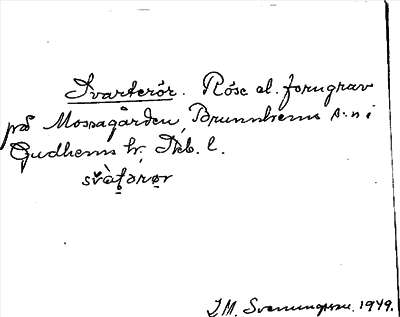 Svarterör. Röse el. forngrav
på Mossagården, Brunnhems s:n i
Gudhems hr, Skb. l.
J.M. Svenungsson. 1949.